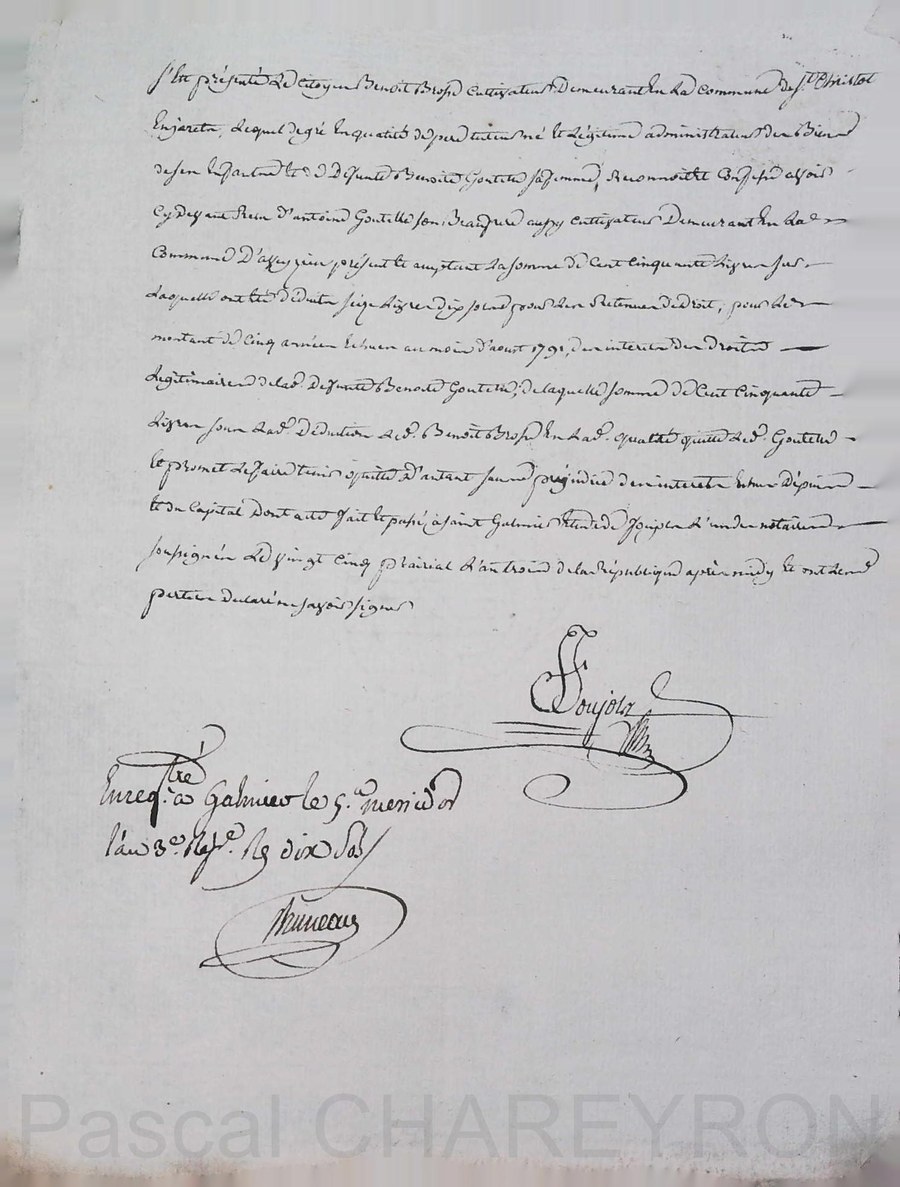 S'est présenté Le Citoyen Benoit Brosse Cultivateur Demeurant En La Commune de St. Christot
Enjarets, Lequel de gré En qualité de pere tuteur né Et Légitime administrateur des Biens
de ses Enfants Et de Défunte Benoite Goutelle sa femme, Reconnoit Et Confesse avoir
Cy devant Recu d'antoine Goutelle son Beaufrere aussy Cultivateur Demeurant En La
Commune D'aveyzieu présent Et acceptant La somme de Cent Cinquante Livres sur
Laquelle ont été déduits seize Livres dix sous pour Les Retenues de droit, pour Le
montant de Cinq années Echues au mois d'aoust 1791, des interets des Droits
Légitimaires de lad. Defunte Benoite Goutelle, de laquelle somme de Cent Cinquante
Livres sous Lad. Déduction Led. Benoit Brosse En lad. qualité quitte Led. Goutelle
Et promet Le faire tenir quitte D'autant sans préjudice des interets Echus Depuis
Et du Capital Dont acte fait Et passé à saint Galmier Etude de Soujols L'un des notaires
soussignés Le vingt Cinq prairial L'an trois de la République après midy Et ont Les
parties Declaré ne savoir signer
Soujols
Enregtré a Galmier le 5. messidor
l'an 3e. Rep. Rs dix sols
Bruneau
Pascal CHAREYRON